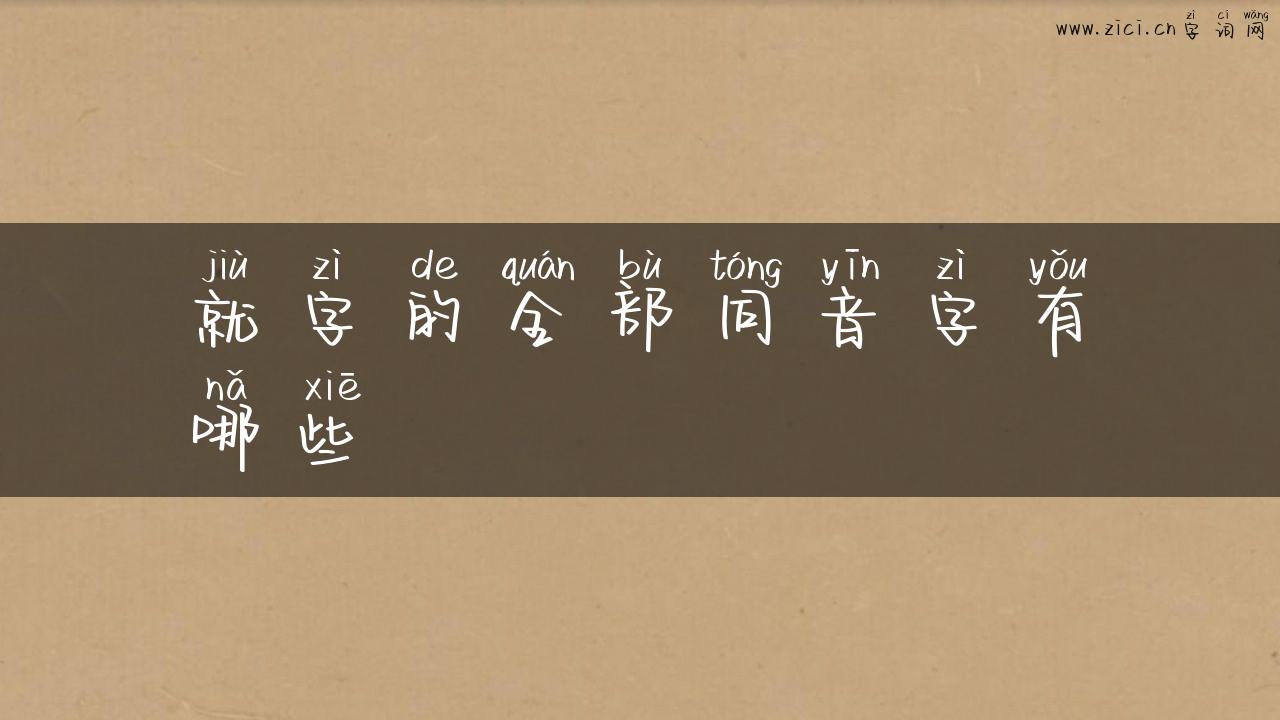 zì cí wǎng
www.zici.cn字词网
jiù zì de quán bù tóng yīn zì yǒu
就字的全部同音字有
nǎ xiē
哪些